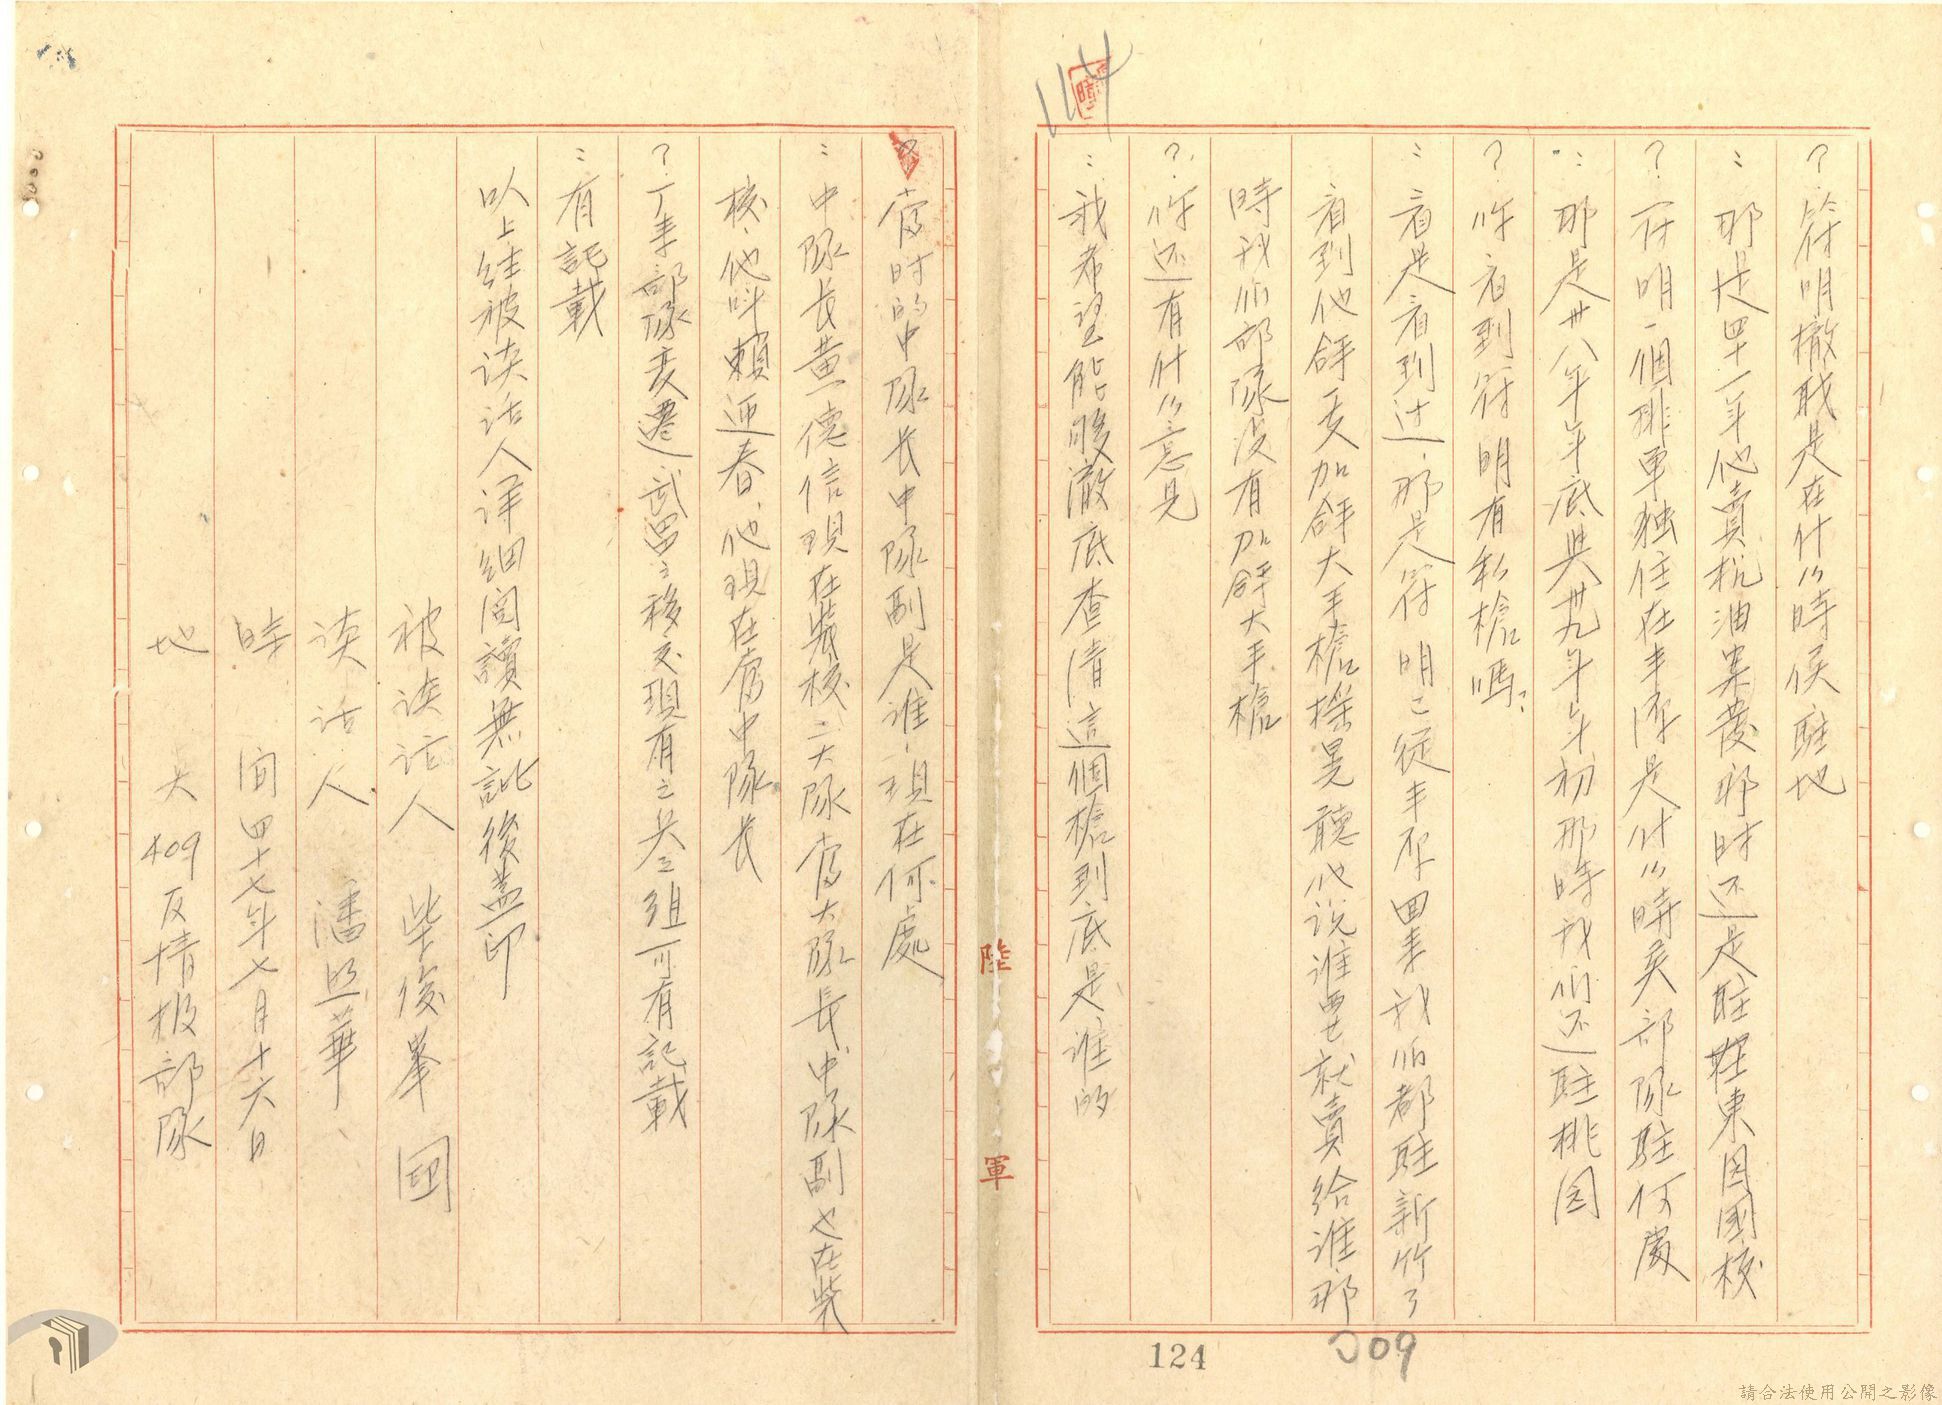 114
?符明撤職是在什么時候駐地
:那是四十一年他賣杭油案發那时还是駐駐東园國校
?符明一個排單独住在丰原是什么時矣部隊駐何處
:那是卅八年年底與卅九年年初那時我們还駐桃园
?你看到符明有私槍嗎?
:看是看到过,那是符明已從丰原回来我们都駐新竹了
看到他
加
大手槍
聽他说誰要就賣給誰那
時我们部隊没有加
大手槍
?你还有什么意見
:我希望能夠澈底查清這個槍到底是誰的
當时的中隊長中隊副是誰,現在何處
:中隊長黄德信現在裝校二大隊當大隊長中隊副也在裝
校,他叫賴迎春,他現在當中隊長
?了来部隊变遷武器之移交現有之兵工组可有記載
:有記載
以上经被谈话人详细閱讀無訛後蓋印
被谈话人 柴俊峯 囙
谈话人 潘思華
時 间 四十七年七月十六日
地 大409反情报部隊
陸
軍
124
009
請合法使用公開之影像